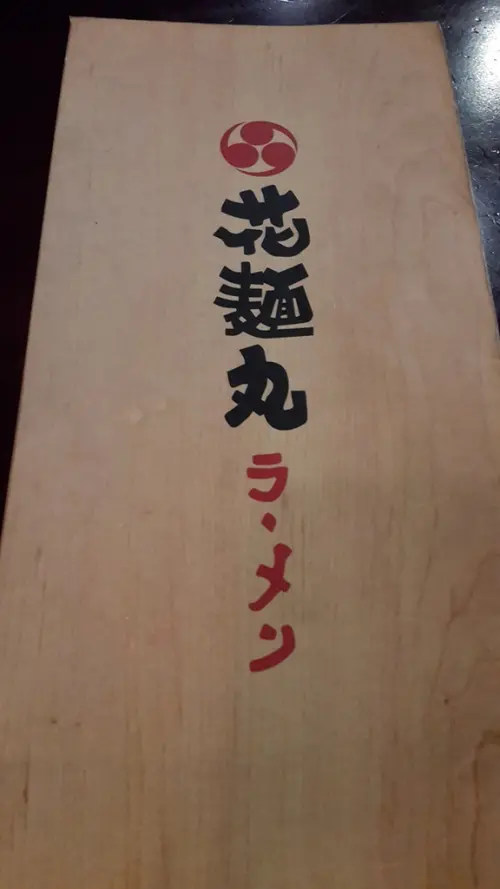 花麺丸
ラ・メン